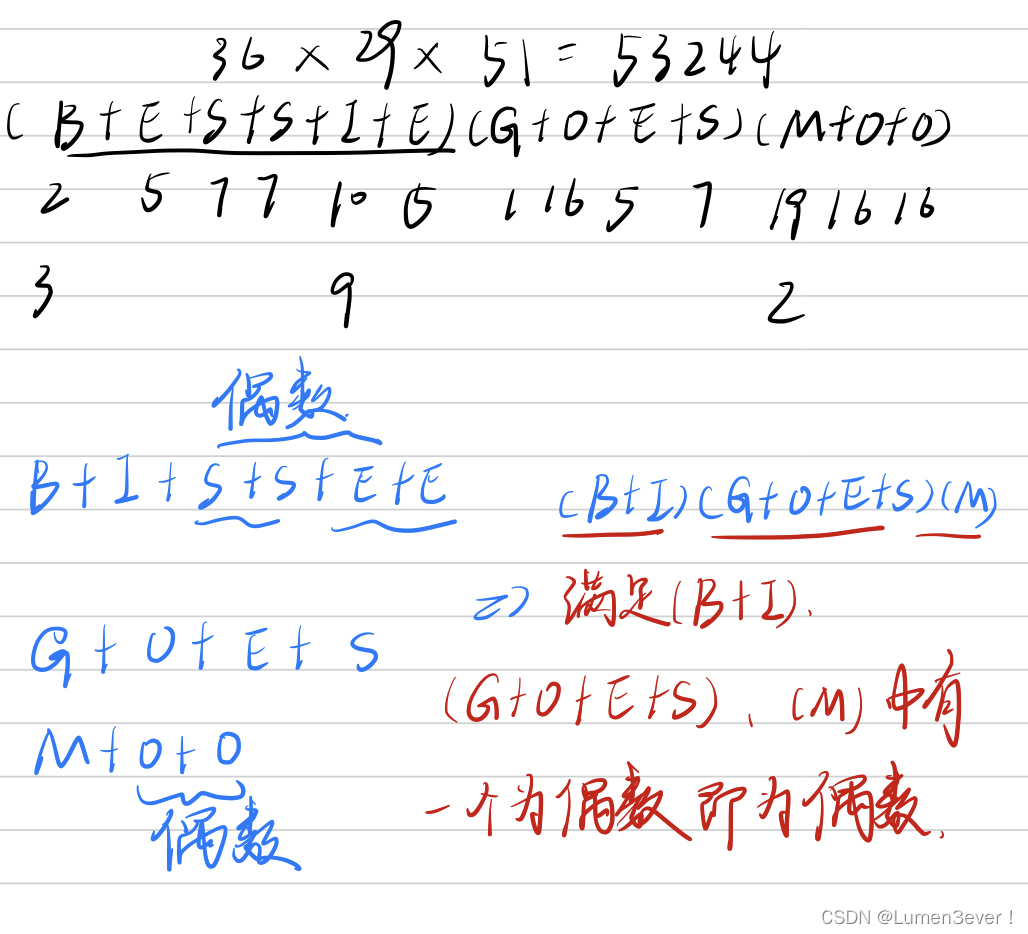 36 × 29 × 51 = 53244
(B+E+S+S+I+E)(G+O+E+S)(M+O+O)
2 5 7 7 10 5 1 16 5 7 19 16 16
3 9 2
偶数
B+I+S+S+E+E
(B+I)(G+O+E+S)(M)
⇒ 满足(B+I).
G+O+E+S
(G+O+E+S)、(M)中有
M+O+O
一个为偶数即为偶数.
偶数
CSDN @Lumen3ever！